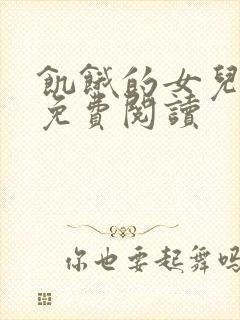 飢餓的女兒
免費閱讀
你也要起舞嗎